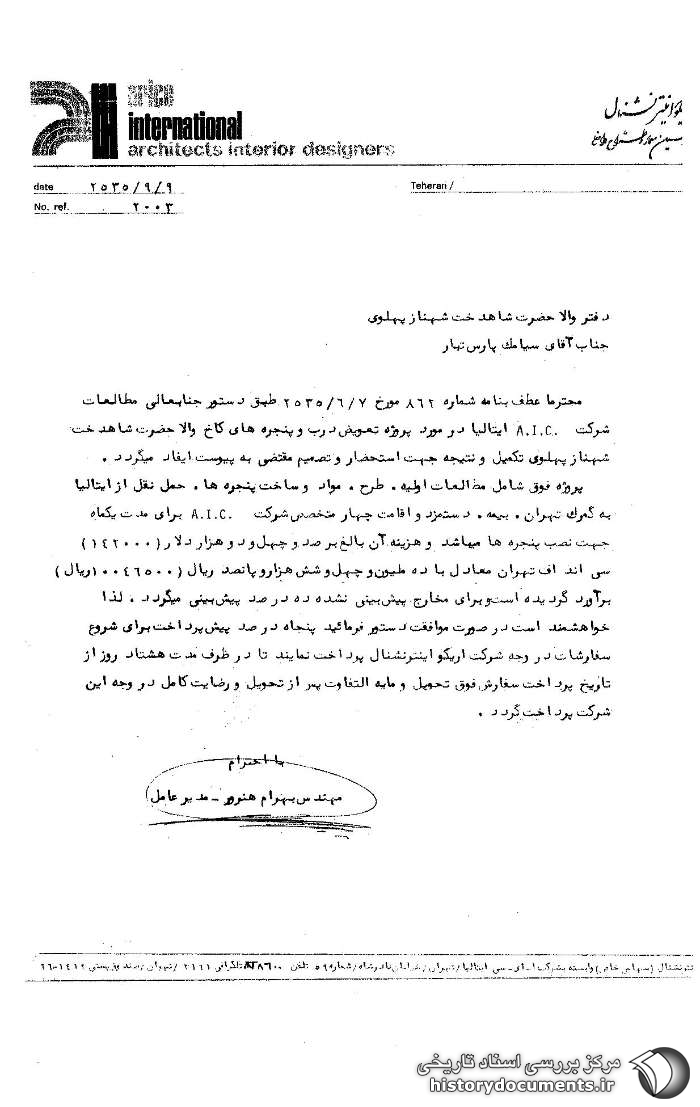 arico
international
architects interior designers
date ۲۵۳۵/۹/۹
Teheran /
No. ref. ۲۰۰۳
دفتر والا حضرت شاهدخت شهناز پهلوی
جناب آقای سیامك پارس تبار
محترما عطف بنامه شماره ۸۶۲ مورخ ۲۵۳۵/۶/۷ طبق دستور جنابعالی مطالعات
شرکت A.I.C. ایتالیا در مورد پروژه تعویض درب و پنجره های کاخ والا حضرت شاهدخت
شهناز پهلوی تکمیل و نتیجه جهت استحضار و تصمیم مقتضی به پیوست ایفاد میگردد .
پروژه فوق شامل مطالعات اولیه . طرح . مواد و ساخت پنجره ها . حمل نقل از ایتالیا
به گمرك تهران . بیمه . دستمزد و اقامت چهار متخصص شرکت A.I.C. برای مدت یکماه
جهت نصب پنجره ها میباشد و هزینه آن بالغ بر صد و چهل و دو هزار دلار (۱٤۲۰۰۰)
سی اند اف تهران معادل با ده ملیون و چهل و شش هزار و پانصد ریال (۱۰۰٤٦٥۰۰ ریال)
برآورد گردیده است و برای مخارج پیش بینی نشده ده در صد پیش بینی میگردد . لذا
خواهشمند است در صورت موافقت دستور فرمائید پنجاه در صد پیش پرداخت برای شروع
سفارشات در وجه شرکت اریکو اینترنشنال پرداخت نمایند تا در ظرف مدت هشتاد روز از
تاریخ پرداخت سفارش فوق تحویل و مابه التفاوت پس از تحویل و رضایت کامل در وجه این
شرکت پرداخت گردد .
با احترام
مهندس بهرام هنرور - مدیر عامل
نترنشنال (سهامی خاص) وابسته بشرکت ا-ای-سی ایتالیا/تهران/خیابان نادرشاه/شماره ۵۹ تلفن تلگرافی ۲۱٦۱ /تهران/صندوق پستی ۱٤۱۲-۱٦
مرکز بررسی اسناد تاریخی
historydocuments.ir